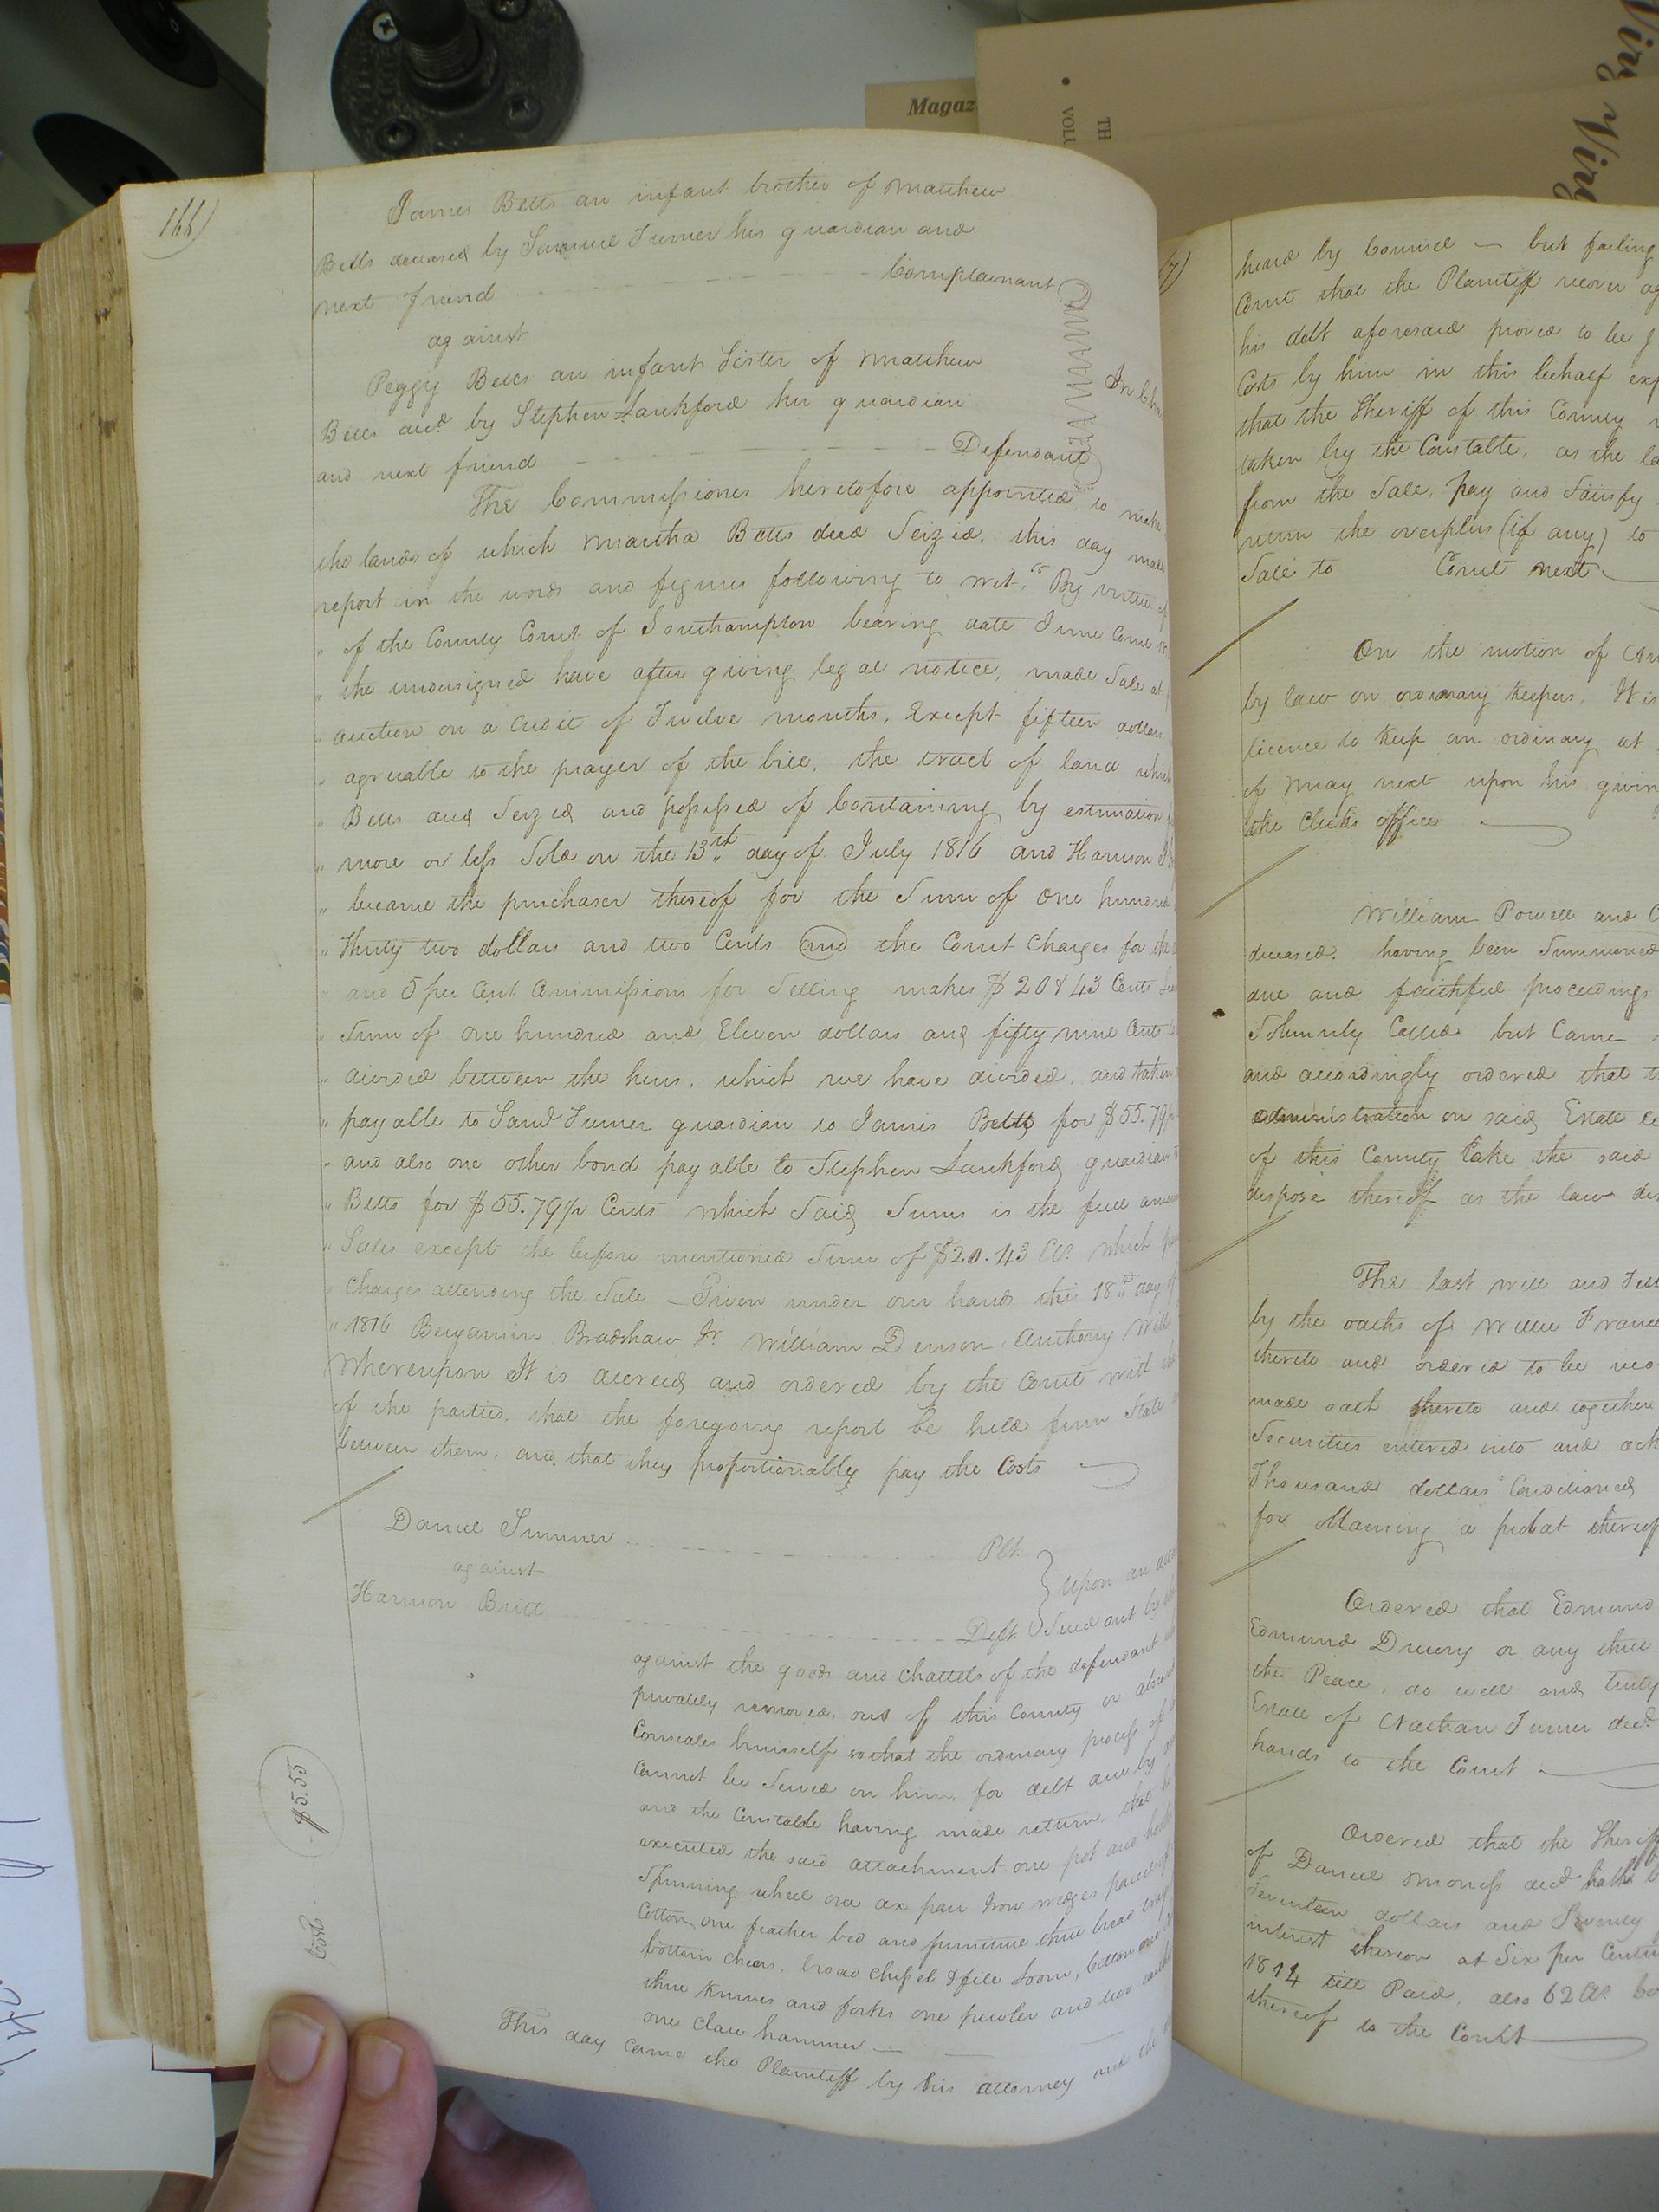 Magaz
TH
VOLU
Virg
Virg
166)
James Betts an infant brother of Matthew
Betts deceased by Samuel Turner his guardian and
next friend Complainant
against
Peggy Betts an infant Sister of Matthew
Betts decd by Stephen Lankford her guardian
and next friend Defendant
In Cha
The Commissioners heretofore appointed to make
the lands of which Martha Betts died Seized, this day made
report in the words and figures following to wit. " By virtue of
" of the County Court of Southampton bearing date June Court
" the undersigned have after giving legal notice, made Sale at
" auction on a Credit of Twelve months, Except fifteen dollars
" agreeable to the prayer of the bill, the tract of land which
" Betts died Seized and possessed of Containing by estimation
" more or less Sold on the 13th day of July 1816 and Harrison
" became the purchaser thereof for the Sum of One hundred
" Thirty two dollars and two Cents and the Court Charges for the
" and 5 per Cent Commissions for Selling makes $20 & 43 Cents
" Sum of one hundred and Eleven dollars and fifty nine Cents
" divided between the heirs, which we have divided, and taken
" payable to Saml Turner guardian to James Betts for $55.79½
" and also one other bond payable to Stephen Lankford guardian
" Betts for $55.79½ Cents which Said Sums is the full amount
" Sales except the before mentioned Sum of $20.43 Cts which
" Charges attending the Sale — Given under our hands this 18th day of
" 1816 Benjamin Bradshaw Jr William Denson Anthony
Whereupon It is decreed and ordered by the Court with
of the parties, that the foregoing report be held firm Stable
between them, and that they proportionably pay the Costs
Daniel Simmer Plt.
against
Harrison Britt Deft.
upon an
Sued out by
against the goods and chattels of the defendant
privately removed, out of this County or
Conceales himself so that the ordinary process of
Cannot be Served on him, for debt due by
and the Constable having made return, that he
executed the said attachment one pot and
Spinning wheel one ax pair Iron wedges parcel of
Cotton, one feather bed and furniture three head
bottom chears, broad chissel & file Loom, Cotton
three Knives and forks one pewter and two
one claw hammer —
This day came the Plaintiff by his attorney and the
Costs $5.55
7)
heard by Counsel — but failing
Court that the Plaintiff recover ag
his debt aforesaid proved to be J
Costs by him in this behalf exp
that the Sheriff of this County
taken by the Constable, as the la
from the Sale, pay and Satisfy
return the overplus (if any) to
Sale to Court next
On the motion of
by law on ordinary Keepers. It is
licence to Keep an ordinary at
of May next upon his givin
the Clerks office
William Powell and
deceased. having been Summoned
due and faithful proceedings
Solemnly Called but Came
and accordingly ordered that t
administration on said Estate
of this County take the said
dispose thereof as the law
The last will and
by the oaths of Willie
thereto and ordered to be
made oath thereto and together
Securities entered into and
Thousand dollars Conditioned
for obtaining a probat thereof
Ordered that Edmund
Edmund Drury or any three
the Peace, do well and truly
Estate of Nathan Turner decd
hands to the Court
Ordered that the Sheriff
of Daniel Moness decd hath
Seventeen dollars and Seventy
interest thereon at Six per Centu
1814 till Paid, also 62 Cts
thereof to the Court